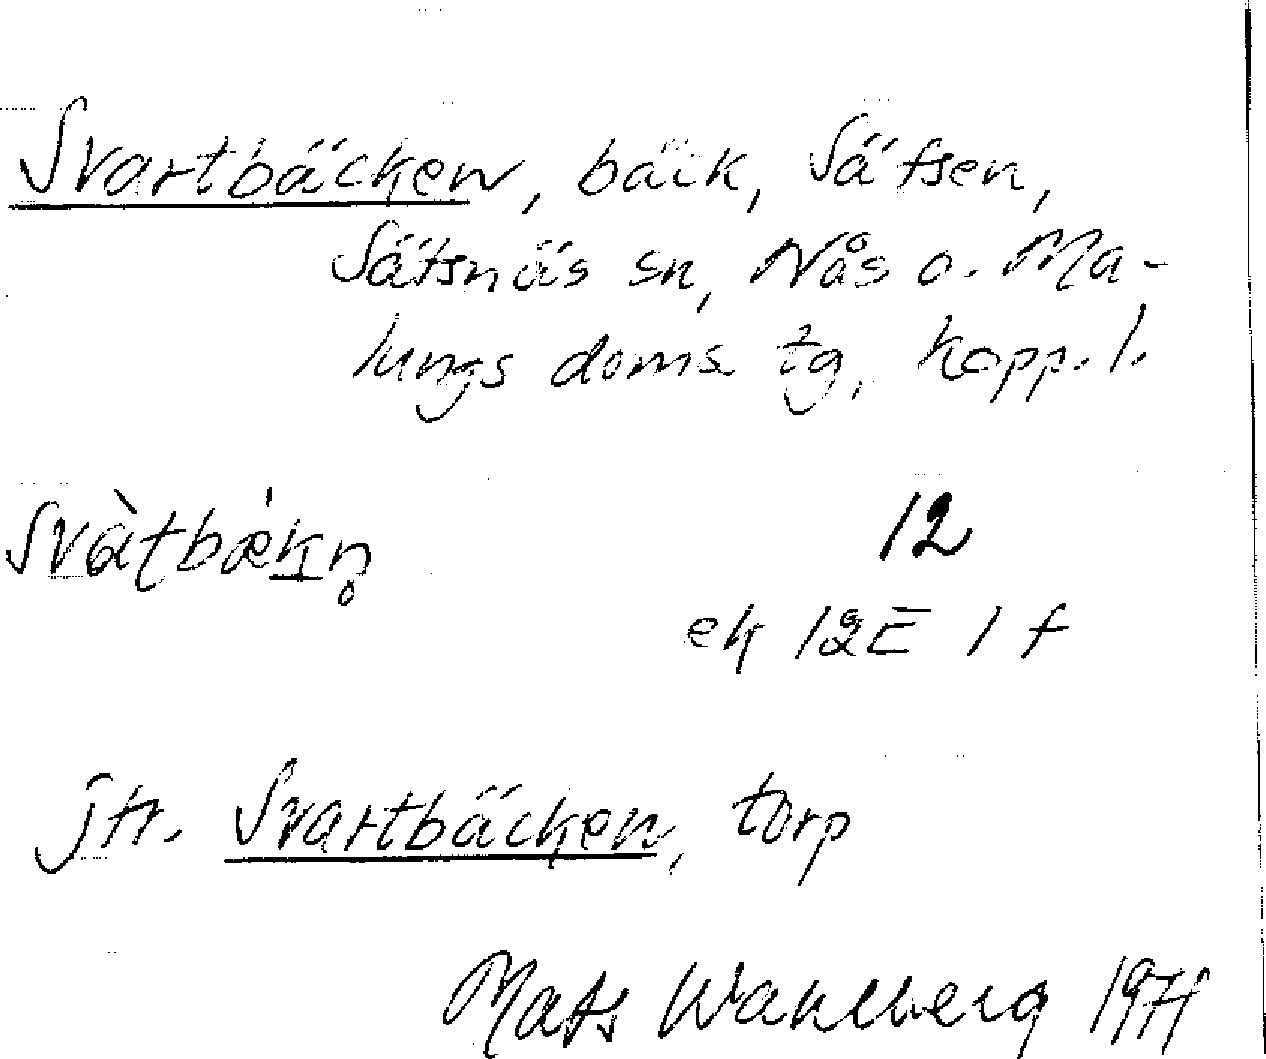 Svartbäcken, bäck, Sätsen,
Sätsnäs sn, Nås o. Ma-
lungs doms tg, Kopp. l.
Svàtbækn̥
12
ek 12E 1 f
jfr. Svartbäcken, torp
Mats Wahlberg 1971